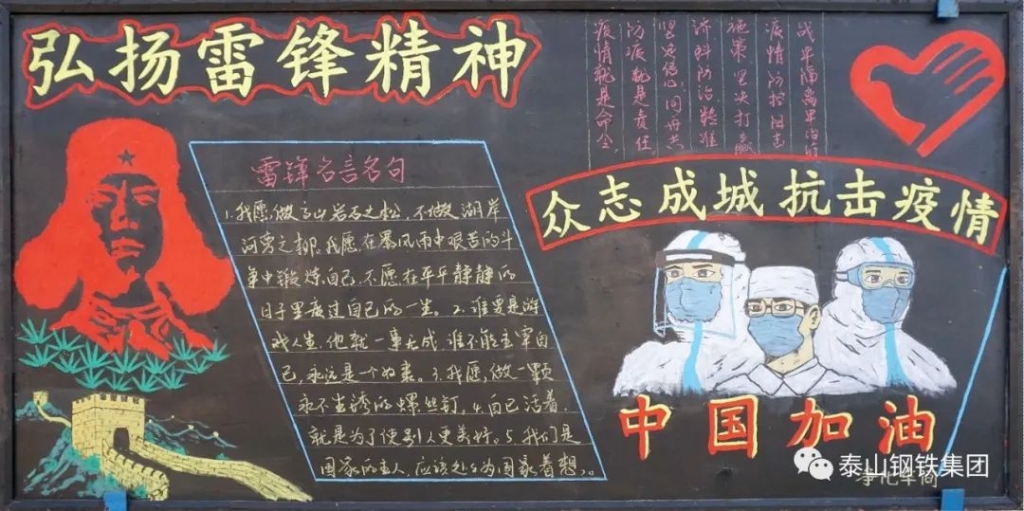 弘扬雷锋精神
雷锋名言名句
1.我愿做高山岩石之松,不做湖岸
河旁之柳,我愿在暴风雨中艰苦的斗
争中锻炼自己,不愿在平平静静的
日子里度过自己的一生。2.谁要是游
戏人生,他就一事无成,谁不能主宰自
己,永远是一个奴隶。3.我愿做一颗
永不生锈的螺丝钉。4.自己活着,
就是为了使别人更美好。5.我们是
国家的主人,应该处处为国家着想。
战 早隔离早治疗
疫情防控阻击
施策坚决打赢
济 科防治精准
坚定信心同舟共
防疫就是责任
疫情就是命令
众志成城抗击疫情
中国加油
泰山钢铁集团
净化车间